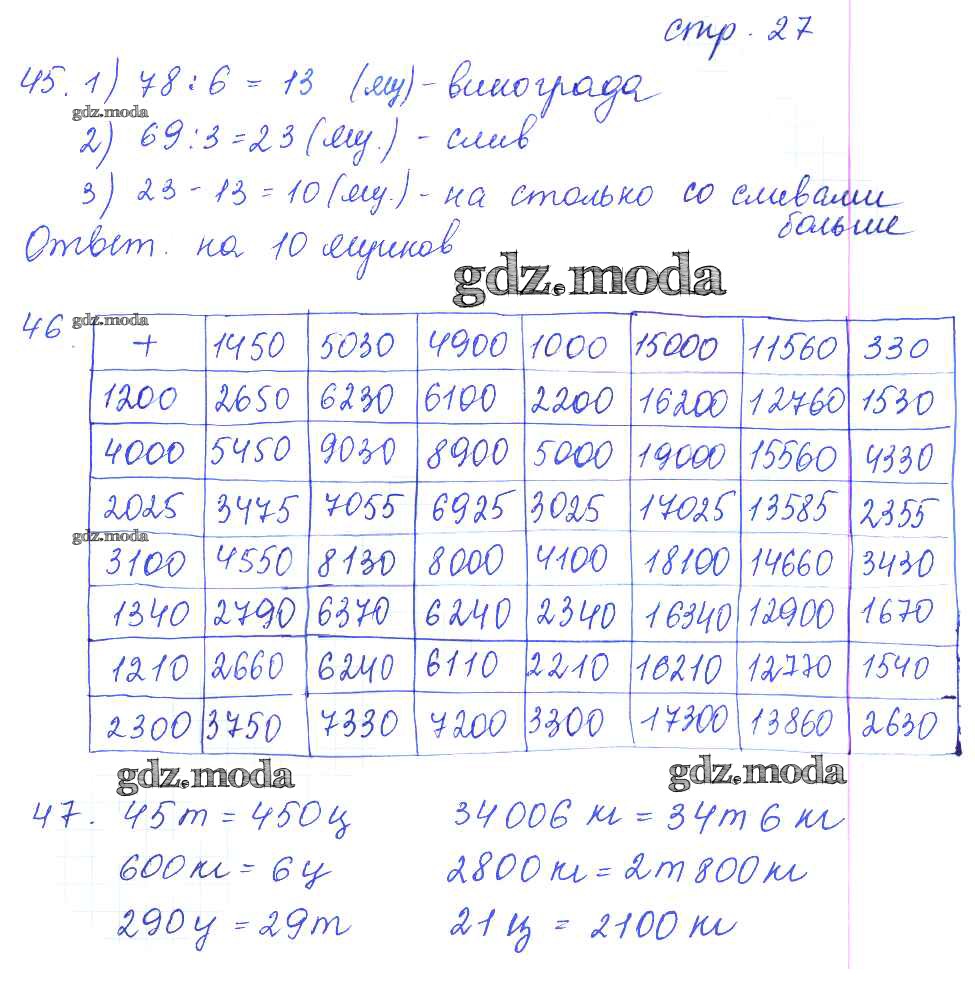 стр. 27
45. 1) 78 : 6 = 13 (ящ) - винограда
gdz.moda
2) 69 : 3 = 23 (ящ.) - слив
3) 23 - 13 = 10 (ящ.) - на столько со сливами
больше
Ответ. на 10 ящиков
gdz.moda
46. gdz.moda
+ 1450 5030 4900 1000 15000 11560 330
1200 2650 6230 6100 2200 16200 12760 1530
4000 5450 9030 8900 5000 19000 15560 4330
2025 3475 7055 6925 3025 17025 13585 2355
gdz.moda
3100 4550 8130 8000 4100 18100 14660 3430
1340 2790 6370 6240 2340 16340 12900 1670
1210 2660 6240 6110 2210 16210 12770 1540
2300 3750 7330 7200 3300 17300 13860 2630
gdz.moda gdz.moda
47. 45т = 450ц 34006 кг = 34т 6 кг
600кг = 6ц 2800кг = 2т 800кг
290ц = 29т 21ц = 2100 кг